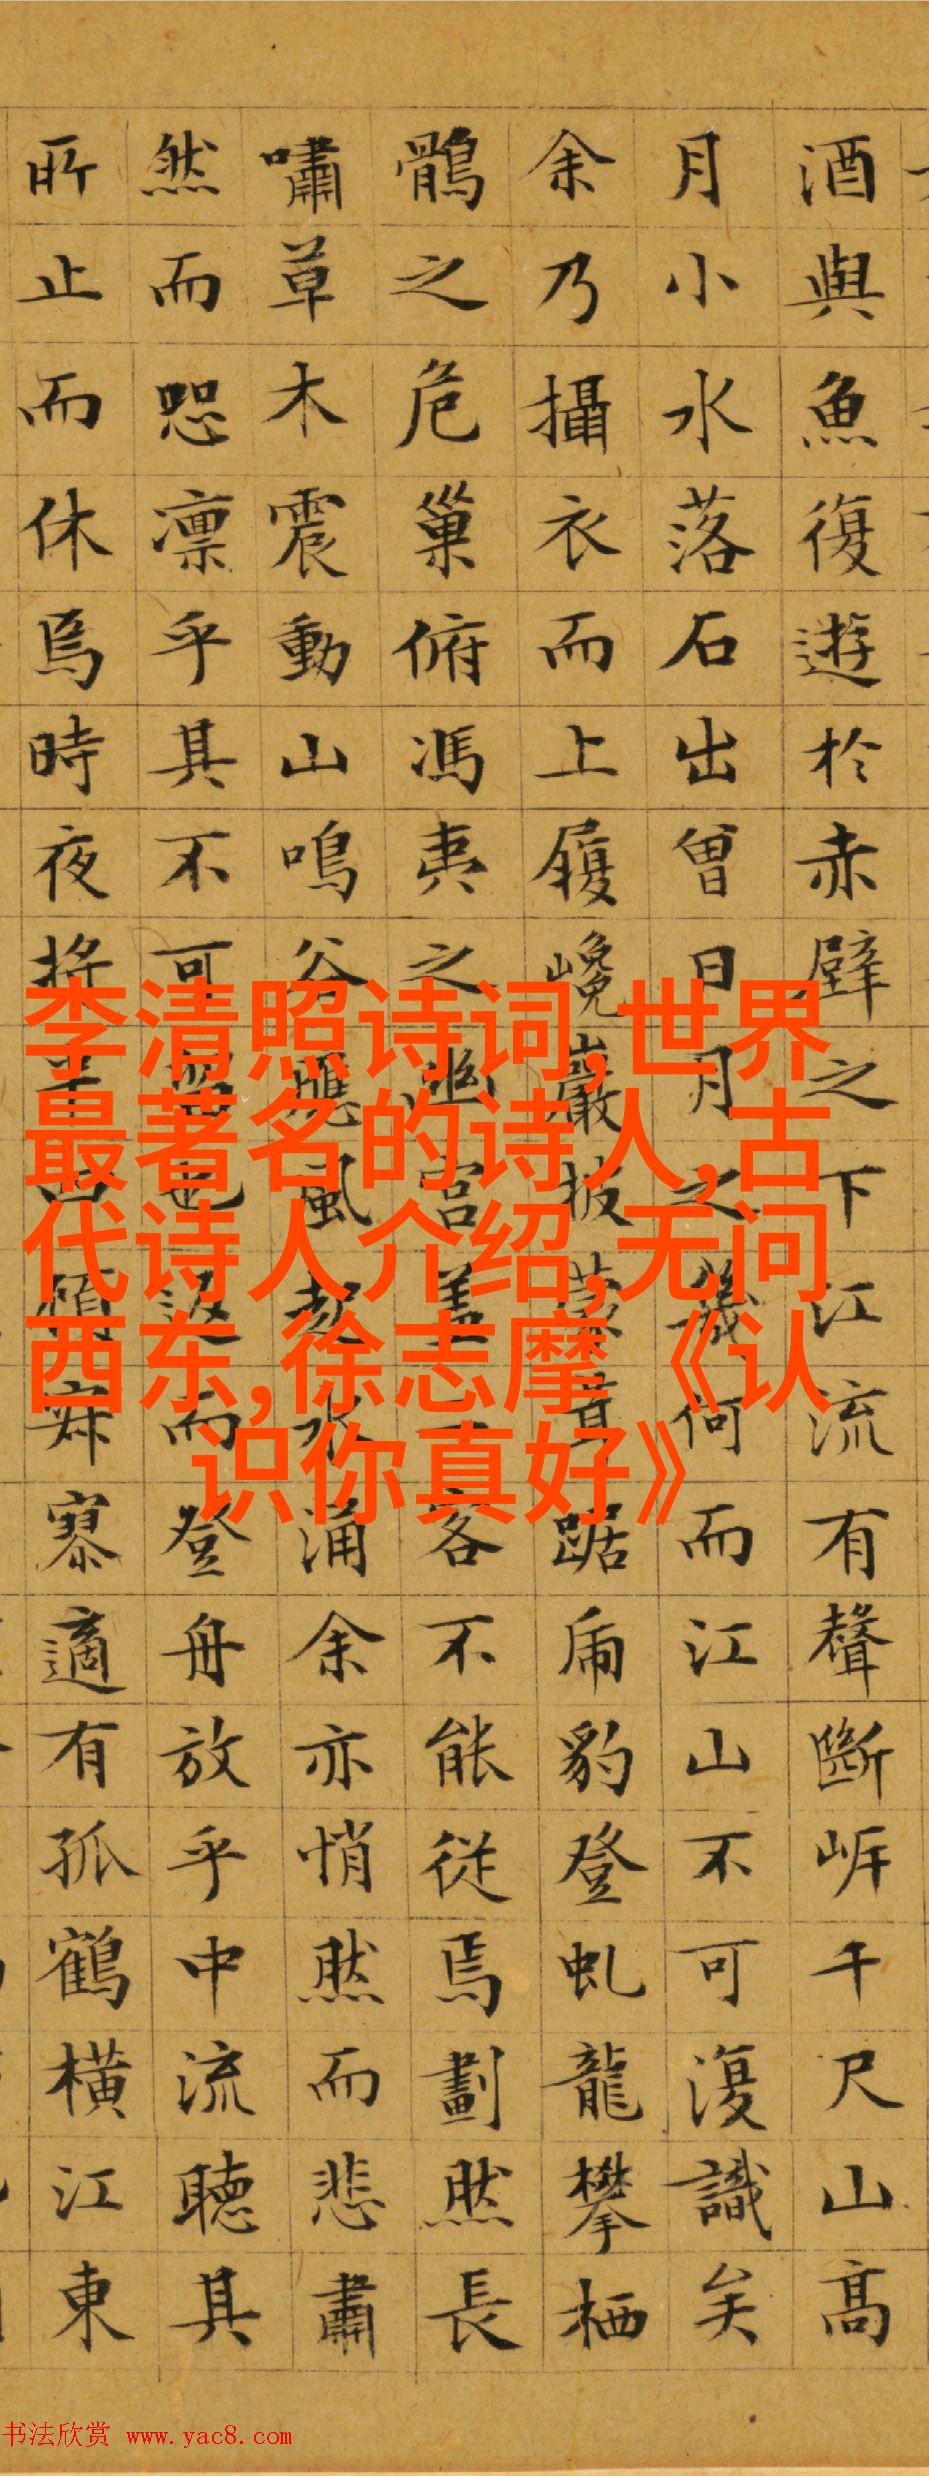 酒與魚復遊於赤壁之下江流有聲斷岸千尺山高
月小水落石出曾日月之幾何而江山不可復識矣
余乃攝衣而上履巉巖披蒙茸踞虎豹登虬龍攀栖
鶻之危巢俯馮夷之幽宮蓋二客不能從焉劃然長
嘯草木震動山鳴谷應風起水涌余亦悄然而悲肅
然而恐凛乎其不可留也返而登舟放乎中流聽其
所止而休焉時夜將半四顧寂寥適有孤鶴橫江東
李清照诗词,世界
最著名的诗人,古
代诗人介绍,无问
西东,徐志摩《认
识你真好》
书法欣赏 www.yac8.com